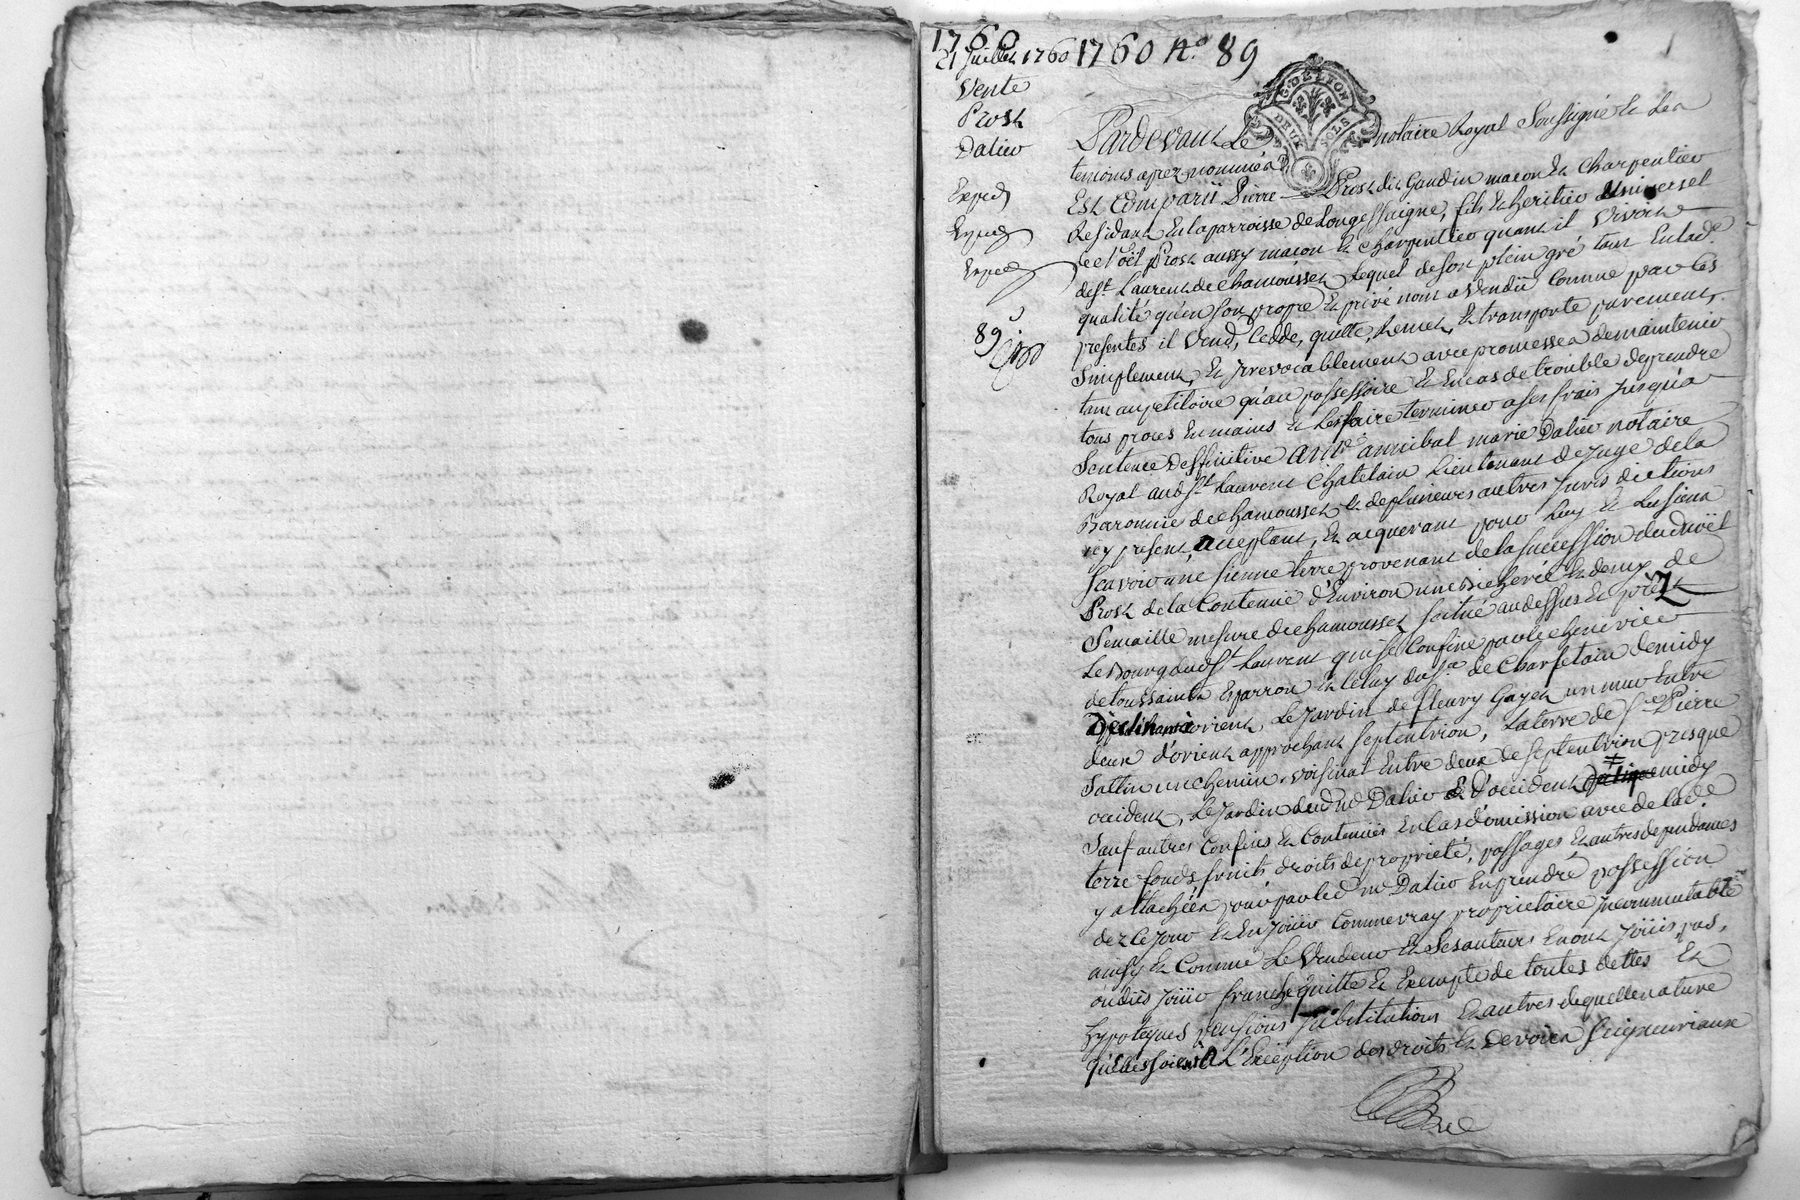 1760
21 Juillet 1760 1760 N.º 89
Vente
Prost
Dalier
Exped
Exped
Exped
89
G. DE LION
DEUX SOLS
Pardevant Le notaire Royal Soussigné Et Les
temoins aprez nommés
Est Comparü Pierre Prost dit Gaudin macon Et Charpentier
Residant En la parroisse de Longessaigne, fils Et heritier universel
de Noël Prost aussy macon Et Charpentier quant il Vivoit
de St. Laurent de Chamousset Lequel de son plein gré tant En lad.e
qualité qu'en son propre Et privé nom a Vendü Comme par les
presentes il Vend, Cedde, quitte, Remet, Et transporte purement,
Simplement, Et Irrevocablement avec promesses de maintenir
tant au petitoire qu'au possessoire Et En cas de trouble de prendre
tous proces En mains Et Les faire terminer a ses frais Jusqu'a
Sentence deffinitive a Mr. annibal marie Dalier notaire
Royal aud. St. Laurent Chatelain Lieutenant de Juge de la
Baronnie de Chamousset Et de plusieurs autres Jurisdictions
icy present, acceptant, Et acquerant pour Luy Et Les siens
Scavoir une sienne terre provenant de la succession dud. Noël
Prost de la Contenüe d'Environ une Bicherée Et demy de
Semaille mesure de Chamousset située au dessus Et prest
Le Bourg dud. St. Laurent qui se Confine par le cheneviée
de toussaint Esparron Et Celuy du Sr. de Charfetain de midy
declinant orient, Le Jardin de fleury Gayet un mur Entre
deux d'orient approchant septentrion, La terre de Sr. Pierre
Sattin un chemin voisinal Entre deux de septentrion presque
occident, Le Jardin dud. Mr. Dalier Et d'occident midy
Sauf autres Confins Et Contenües En Cas d'omission avec de lad.e
terre fonds, fruits droits de proprieté, passages Et autres dependances
y attachées pour par led. Mr. Dalier En prendre possession
dez ce Jour Et En Joüir Comme vray proprietaire Incommutable
ainsy Et Comme Le Vendeur Et Ses auteurs En ont Joüis, pus,
ou dûs Joüir franche quitte Et Exempte de toutes dettes Et
hypoteques pensions substitutions Et autres de quelle nature
qu'elles soient a L'Exception des droits Et Devoirs Seigneuriaux